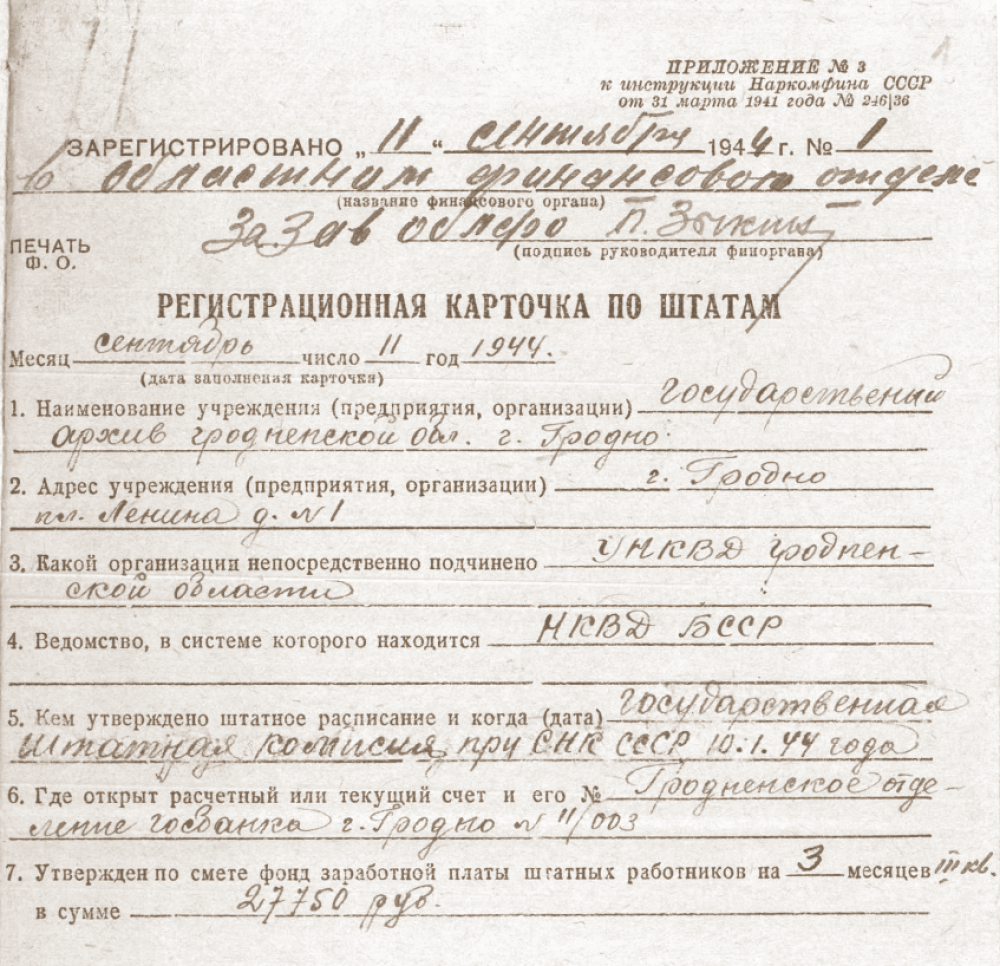 ПРИЛОЖЕНИЕ № 3
к инструкции Наркомфина СССР
от 31 марта 1941 года № 246|36
ЗАРЕГИСТРИРОВАНО „ 11 “ сентября 1944 г. № 1
в областним финансового отделе
(название финансового органа)
ПЕЧАТЬ
Ф. О.
За Зав облфо П. Зыкин
(подпись руководителя финоргана)
РЕГИСТРАЦИОННАЯ КАРТОЧКА ПО ШТАТАМ
Месяц сентябрь число 11 год 1944.
(дата заполнения карточки)
1. Наименование учреждения (предприятия, организации) государственый
архив гродненской обл. г. Гродно
2. Адрес учреждения (предприятия, организации) г. Гродно
пл. Ленина д. N 1
3. Какой организации непосредственно подчинено УНКВД гроднен-
ской области
4. Ведомство, в системе которого находится НКВД БССР
5. Кем утверждено штатное расписание и когда (дата) государственная
штатная комисия при СНК СССР 10.1.44 года
6. Где открыт расчетный или текущий счет и его № Гродненское отде-
ление госбанка г. Гродно N 11/003
7. Утвержден по смете фонд заработной платы штатных работников на 3 месяцев III кв.
в сумме 27750 руб.